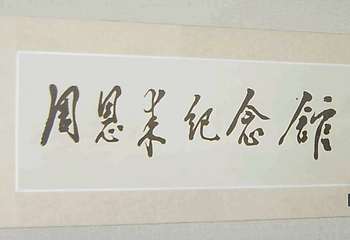 周恩来纪念館